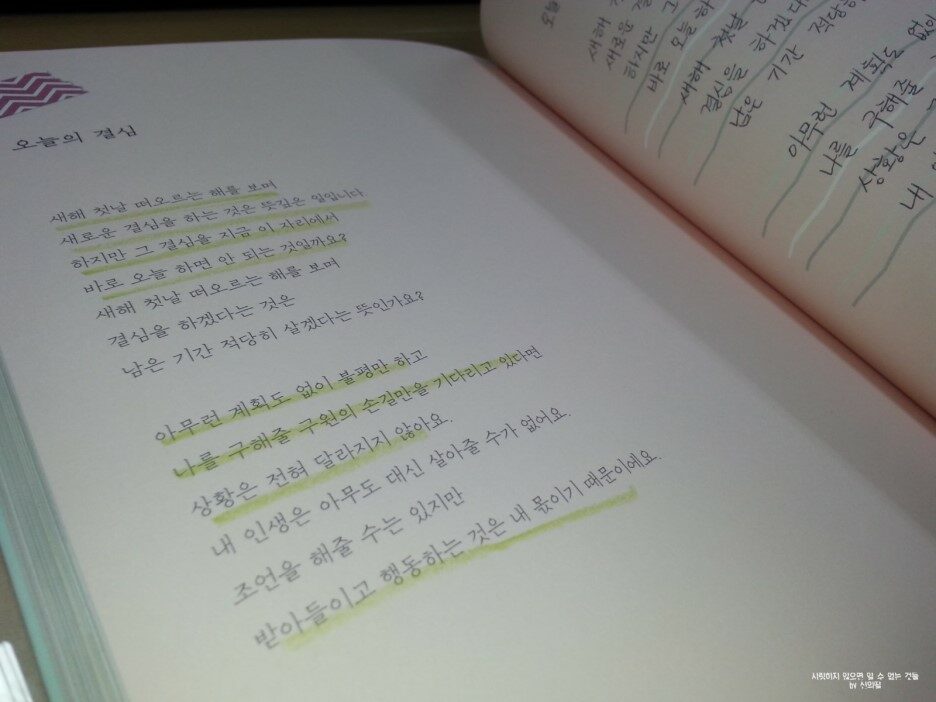 오늘의 결심
새해 첫날 떠오르는 해를 보며
새로운 결심을 하는 것은 뜻깊은 일입니다
하지만 그 결심을 지금 이 자리에서
바로 오늘 하면 안 되는 것일까요?
새해 첫날 떠오르는 해를 보며
결심을 하겠다는 것은
남은 기간 적당히 살겠다는 뜻인가요?
아무런 계획도 없이 불평만 하고
나를 구해줄 구원의 손길만을 기다리고 있다면
상황은 전혀 달라지지 않아요.
내 인생은 아무도 대신 살아줄 수가 없어요.
조언을 해줄 수는 있지만
받아들이고 행동하는 것은 내 몫이기 때문이에요.
오늘
새해
새로운
하지만 그
바로 오늘 하
새해 첫날
결심을 하겠다
남은 기간 적당히
아무런 계획도 없이
나를 구해줄
상황은
내
사랑하지 않으면 알 수 없는 것들
by 신의필